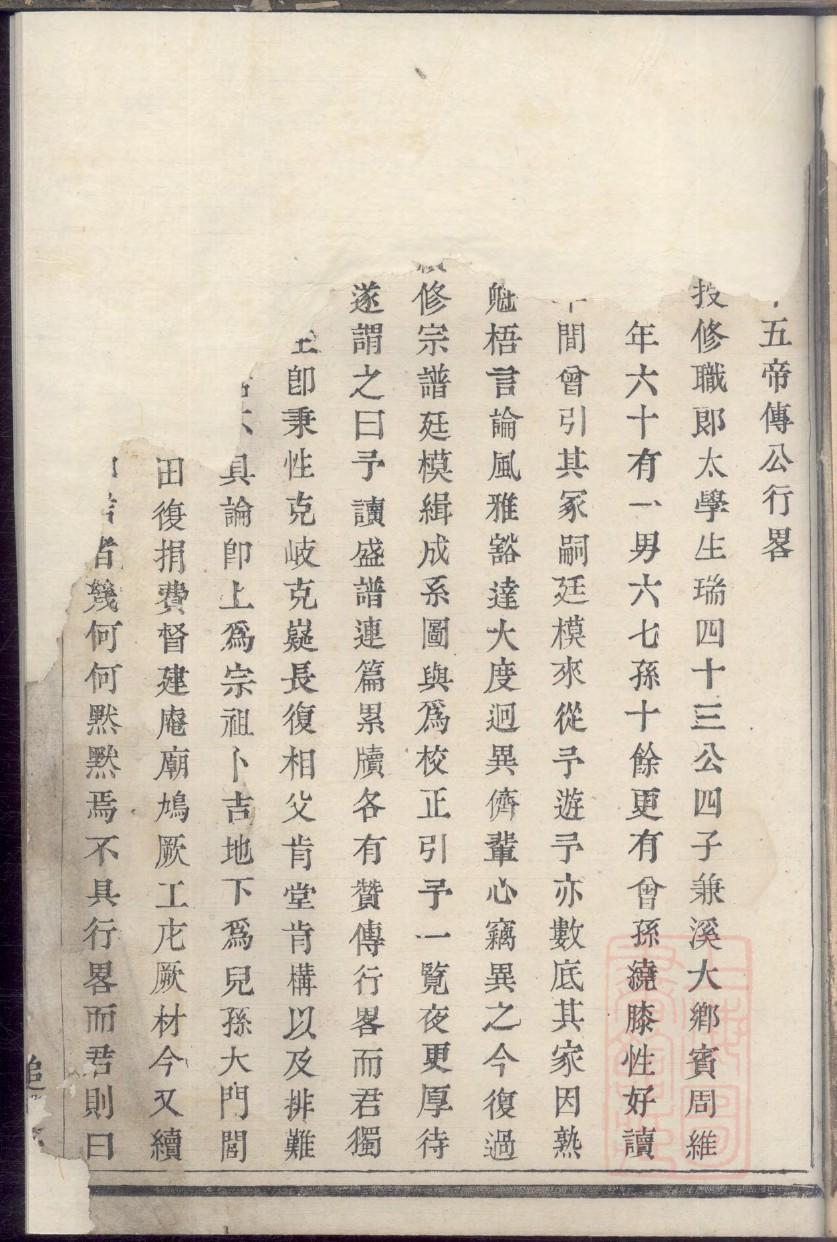 五帝傳公行畧
授修職郎太學生瑞四十三公四子兼溪大鄉賓周維
年六十有一男六七孫十餘更有曾孫繞膝性好讀
間曾引其冢嗣廷模來從予遊予亦數底其家因熟
魁梧言論風雅豁達大度迥異儕輩心竊異之今復過
修宗譜廷模緝成系圖與爲校正引予一覽夜更厚待
遂謂之曰予讀盛譜連篇累牘各有贊傳行畧而君獨
卽秉性克岐克嶷長復相父肯堂肯構以及排難
具論卽上爲宗祖卜吉地下爲兒孫大門閭
田復捐費督建庵廟鳩厥工庀厥材今又續
者幾何何默默焉不具行畧而君則曰